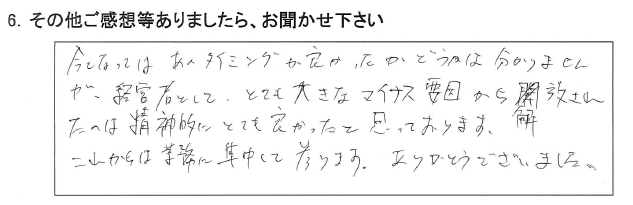 6. その他ご感想等ありましたら、お聞かせ下さい
今となっては あのタイミングが良かったかどうかは 分かりません
が、経営者として、とても大きなマイナス要因から開放され
解
たのは精神的にとても良かったと思っております。
これからは業務に集中して参ります。ありがとうございました。